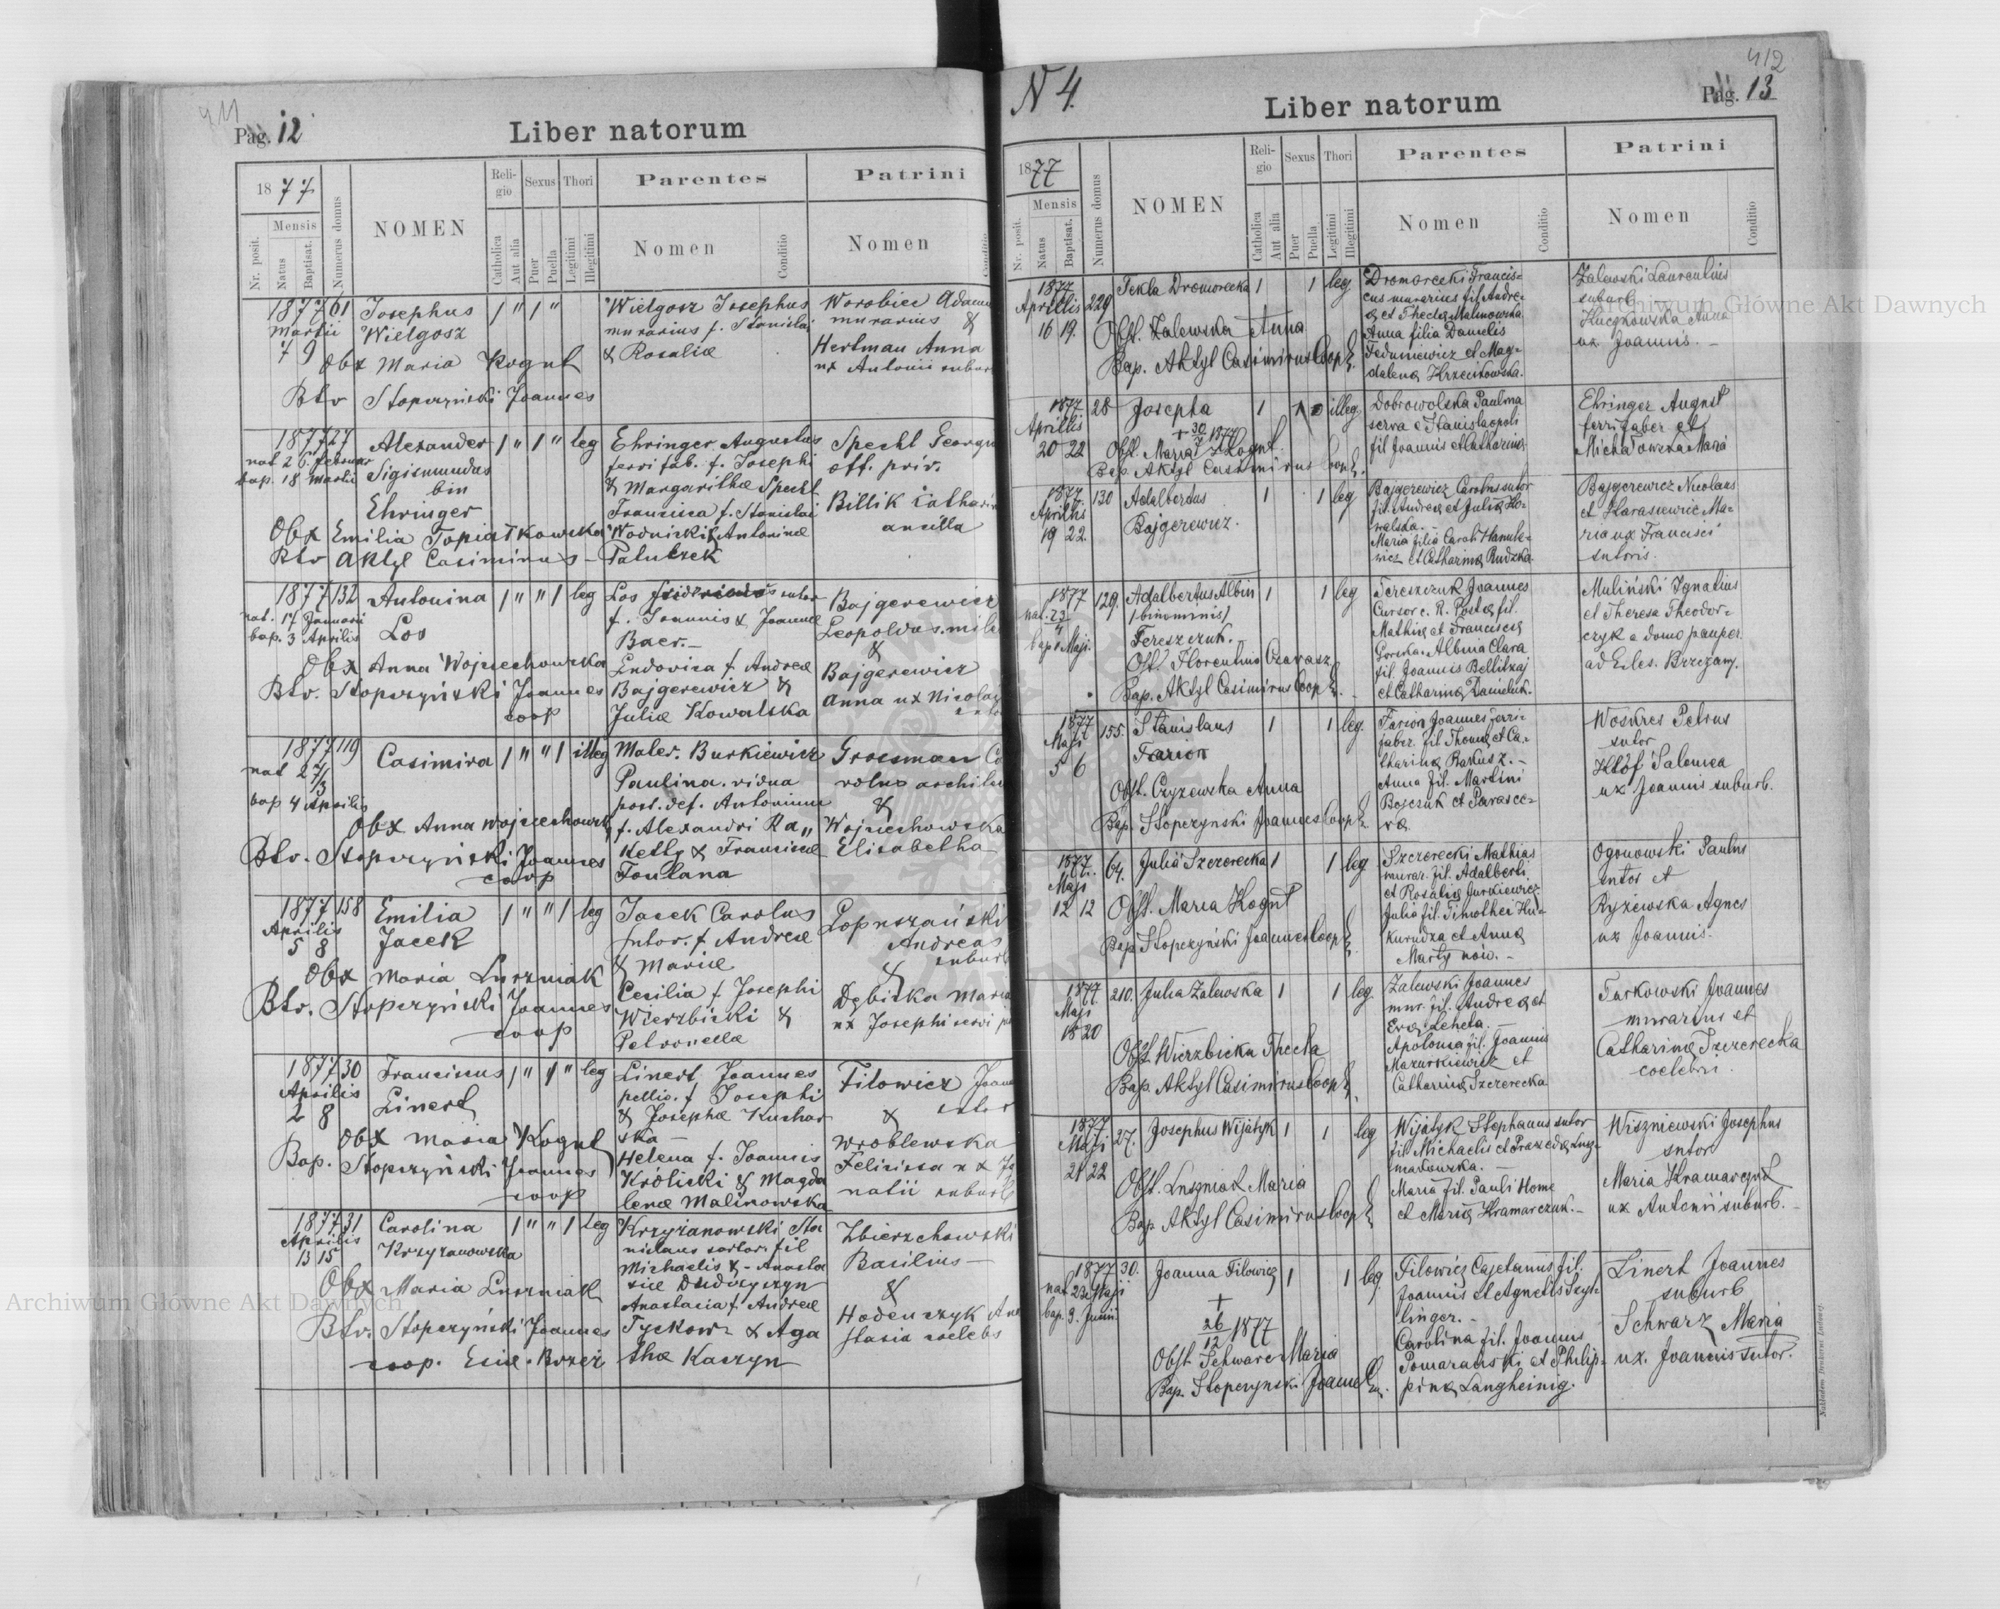 411
Pag. 12
Liber natorum
1877
Nr. posit.
Mensis
Natus
Baptisat.
Numerus domus
NOMEN
Religio
Catholica
Aut alia
Sexus
Puer
Puella
Thori
Legitimi
Illegitimi
Parentes
Nomen
Conditio
Patrini
Nomen
1877 61 Josephus 1 " 1 " Wielgosz Josephus Worobiec Adamus
Martii Wielgosz murarius f. Stanislai murarius &
7 9 & Rosaliæ Hertman Anna
Obx Maria Kogut ux Antonii suburb
Btv Stopczyński Joannes
1877 27 Alexander 1 " 1 " leg Ehringer Augustus Specht Georgius
nat 26 Februar Sigismundus ferri fab. f. Josephi off. priv.
bap. 18 Martii bin & Margarithæ Specht Billik Catharina
Ehringer Francisca f. Stanislai ancilla
Obx Emilia Topiatkowska Wodnicki & Antoninæ
Btv Aktyl Casimirus
1877 132 Antonina 1 " " 1 leg Los sutor Bajgerewicz
nat. 17 Januarii Los f. Joannis & Joannæ Leopoldus
bap. 3 Aprilis Baer.- &
Obx Anna Wojciechowska Ludovica f. Andreæ Bajgerewicz
Btv. Stopczyński Joannes Bajgerewicz & Anna ux Nicolay
coop Juliæ Kowalska
1877 119 Casimira 1 " " 1 illeg Mater. Burkiewicz Grossman
nat 27/3 Paulina. vidua
bap 4 Aprilis post. def. Antonium &
Obx Anna Wojciechowska f. Alexandri Ra„ Wojciechowska
Btv. Stopczyński Joannes Ketly & Franciscæ Elisabetha
coop Foulana
1877 158 Emilia 1 " " 1 leg Jacek Carolus Łopuszański
Aprilis Jacek sutor. f Andreæ Andreas
5 8 & Mariæ suburb
Obx Maria Luszniak Cecilia f Josephi &
Btv. Stopczyński Joannes Wierzbicki & Dębicka Maria
coop Petronellæ ux Josephi
1877 30 Franciscus 1 " 1 " leg Linert Joannes Filowicz Joannes
Aprilis Linert pellio. f Josephi sutor
2 8 & Josephæ Kuchar &
Obx Maria Kogut ska - Wroblewska
Bap. Stopczyński Joannes Helena f. Joannis Felicissa ux Ig
coop Królicki & Magda natii suburb
lenæ Malinowska
1877 31 Carolina 1 " " 1 leg Krzyżanowski Sta Zbierzchowski
Aprilis Krzyżanowska nislaus sartor. fil Basilius
13 15 Michaelis & - Anasta &
Obx Maria Luszniak siæ Dudwyczyn Hodenczyk Ana
Btv. Stopczyński Joannes Anastasia f. Andreæ stasia coelebs
coop. Ecclæ. Brzez Tyckow & Aga
thæ Kaszyn
N 4.
412
Pag. 13
Liber natorum
1877
Nr. posit.
Mensis
Natus
Baptisat.
Numerus domus
NOMEN
Religio
Catholica
Aut alia
Sexus
Puer
Puella
Thori
Legitimi
Illegitimi
Parentes
Nomen
Conditio
Patrini
Nomen
Conditio
1877 229 Tekla Dromorecka 1 1 leg Dromorecki Francis- Zalewski Laurentius
Aprilis cus murarius fil Andre- suburb
16 19. Obst. Zalewska Anna æ et Theclæ Malinowska Huczkowska Anna
Bap. Aktyl Casimirus Coop E. Anna filia Danielis ux Joannis. -
Feduniewicz et Mag-
dalenæ Krzeczkowska.
1877 28 Josepha 1 1 illeg. Dobrowolska Paulina Ehringer August
Aprilis + 30/7 1877 serva e Stanislaopoli ferrifaber et
20 22 Obst. Maria Kogut fil Joannis et Catharinæ Michałowska Maria
Bap. Aktyl Casimirus Coop E.
1877 130 Adalbertus 1 1 leg Bajgerewicz Carolus sutor Bajgerewicz Nicolaus
Aprilis Bajgerewicz. fil. Andreæ et Juliæ Ko- et Harasiewicz Ma-
19 22 walska.- ria ux Francisci
Maria filia Caroli Hanule- sutoris.
wicz et Catharinæ Rudzka
1877 129. Adalbertus Albin 1 1 leg Tereszczuk Joannes Muliński Ignatius
nat. 23/4 (binominis) Cursor c. R. Postæ fil. et Theresa Theodor-
bap Maji. Tereszczuk. Mathiæ et Franciscæ czyk e domo pauper.
Obst. Florentina Czarasz Gorska. Albina Clara ad Ecles. Brzezany.
Bap. Aktyl Casimirus Coop E. fil. Joannis Bellitzaj
et Catharinæ Daniluk.
1877 155. Stanislaus 1 1 leg. Farion Joannes ferri- Woskres Petrus
Maji Farion faber. fil Thomæ et Ca- sutor
5 6 tharinæ Rakusz.- Kłof Salomea
Obst. Czyzewska Anna Anna fil. Martini ux Joannis suburb.
Bap. Stopczynski Joannes Coop E Bojczuk et Parasce-
væ
1877 64. Julia Szczorecka 1 1 leg Szczorecki Mathias Ogonowski Paulus
Maji murar. fil. Adalberti sutor et
12 12 Obst. Maria Kogut et Rosaliæ Jurkiewicz Ryżewska Agnes
Bap Stopczyński Joannes Coop E. Julia fil. Timothei Hu- ux Joannis.
kurudza et Annæ
Martynow. -
1877 210. Julia Zalewska 1 1 leg. Zalewski Joannes Turkowski Joannes
Maji mur. fil. Andreæ et murarius et
18 20 Evæ Leheta. - Catharina Szczerecka
Obst. Wierzbicka Thecla Apolonia fil. Joannis coelebri.
Bap. Aktyl Casimirus Coop E. Mazurkiewicz et
Catharinæ Szczerecka
1877 27. Josephus Wijatyk 1 1 leg Wijatyk Stephanus sutor Wiszniewski Josephus
Maji fil Michaelis et Praxedæ sutor
21 22 Obst. Luszniak Maria Maria fil. Pauli Home Maria Kramarczuk
Bap. Aktyl Casimirus Coop E et Mariæ Kramarczuk.- ux Antonii suburb. -
1877 30. Joanna Filowicz 1 1 leg. Filowicz Cajetanus fil. Linert Joannes
nat. 23 Maji + Joannis et Agnetis Szyt- suburb
bap. 3. Junii 26/12 1877 linger.- Schwarz Maria
Obst. Schwarc Maria Carolina fil. Joannis ux. Joannis sutor.
Bap. Stopczynski Joannes Pomaranski et Philip-
pinæ Langheinig.
Archiwum Główne Akt Dawnych
Archiwum Główne Akt Dawnych